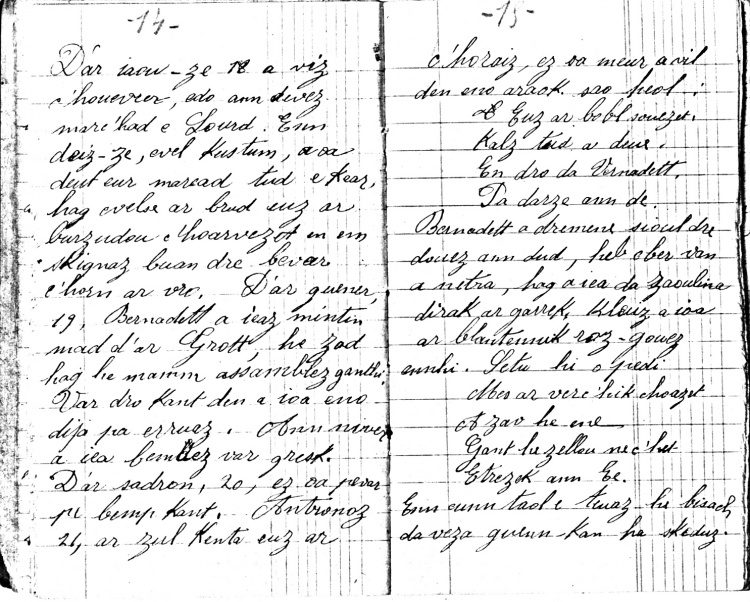 -14-
D'ar iaou-ze 18 a viz
c'houevrer, edo ann devez
marc'had e Lourd. Enn
deiz-ze, evel kustum, a oa
deut eur maread tud e kear,
hag evelse ar brud euz ar
burzudou c'hoarvezet en em
skignaz buan dre bevar
c'horn ar vro. D'ar guener,
19, Bernadett a ieaz mintin
mad d'ar Grott, he zad
hag he mamm assamblez ganthi.
Var dro kant den a ioa eno
dija pa erruaz. Ann niver
a iea bemdez var gresk.
D'ar sadorn, 20, ez oa pevar
pe bemp kant. Antronoz
21, ar zul kenta euz ar
-15-
c'horaiz, ez oa meur a vil
den eno araok sao heol:
Euz ar bobl souezet.
Kalz tud a deue.
En dro da Vernadett.
Pa darze ann de.
Bernadett a dremene sioul dre
douez ann dud, heb ober van
a netra, hag a iea da zaoulina
dirak ar garrek. Kleiz a ioa
ar blantennik roz-gouez
ennhi. Setu hi o pedi
Mes ar verc'hik choazet
A zav he ene
Gant he zellou nec'het
Etrezek ann Ee.
Enn eunn taol e tuaz he bisach
da veza guenn-kan ha skeduz.